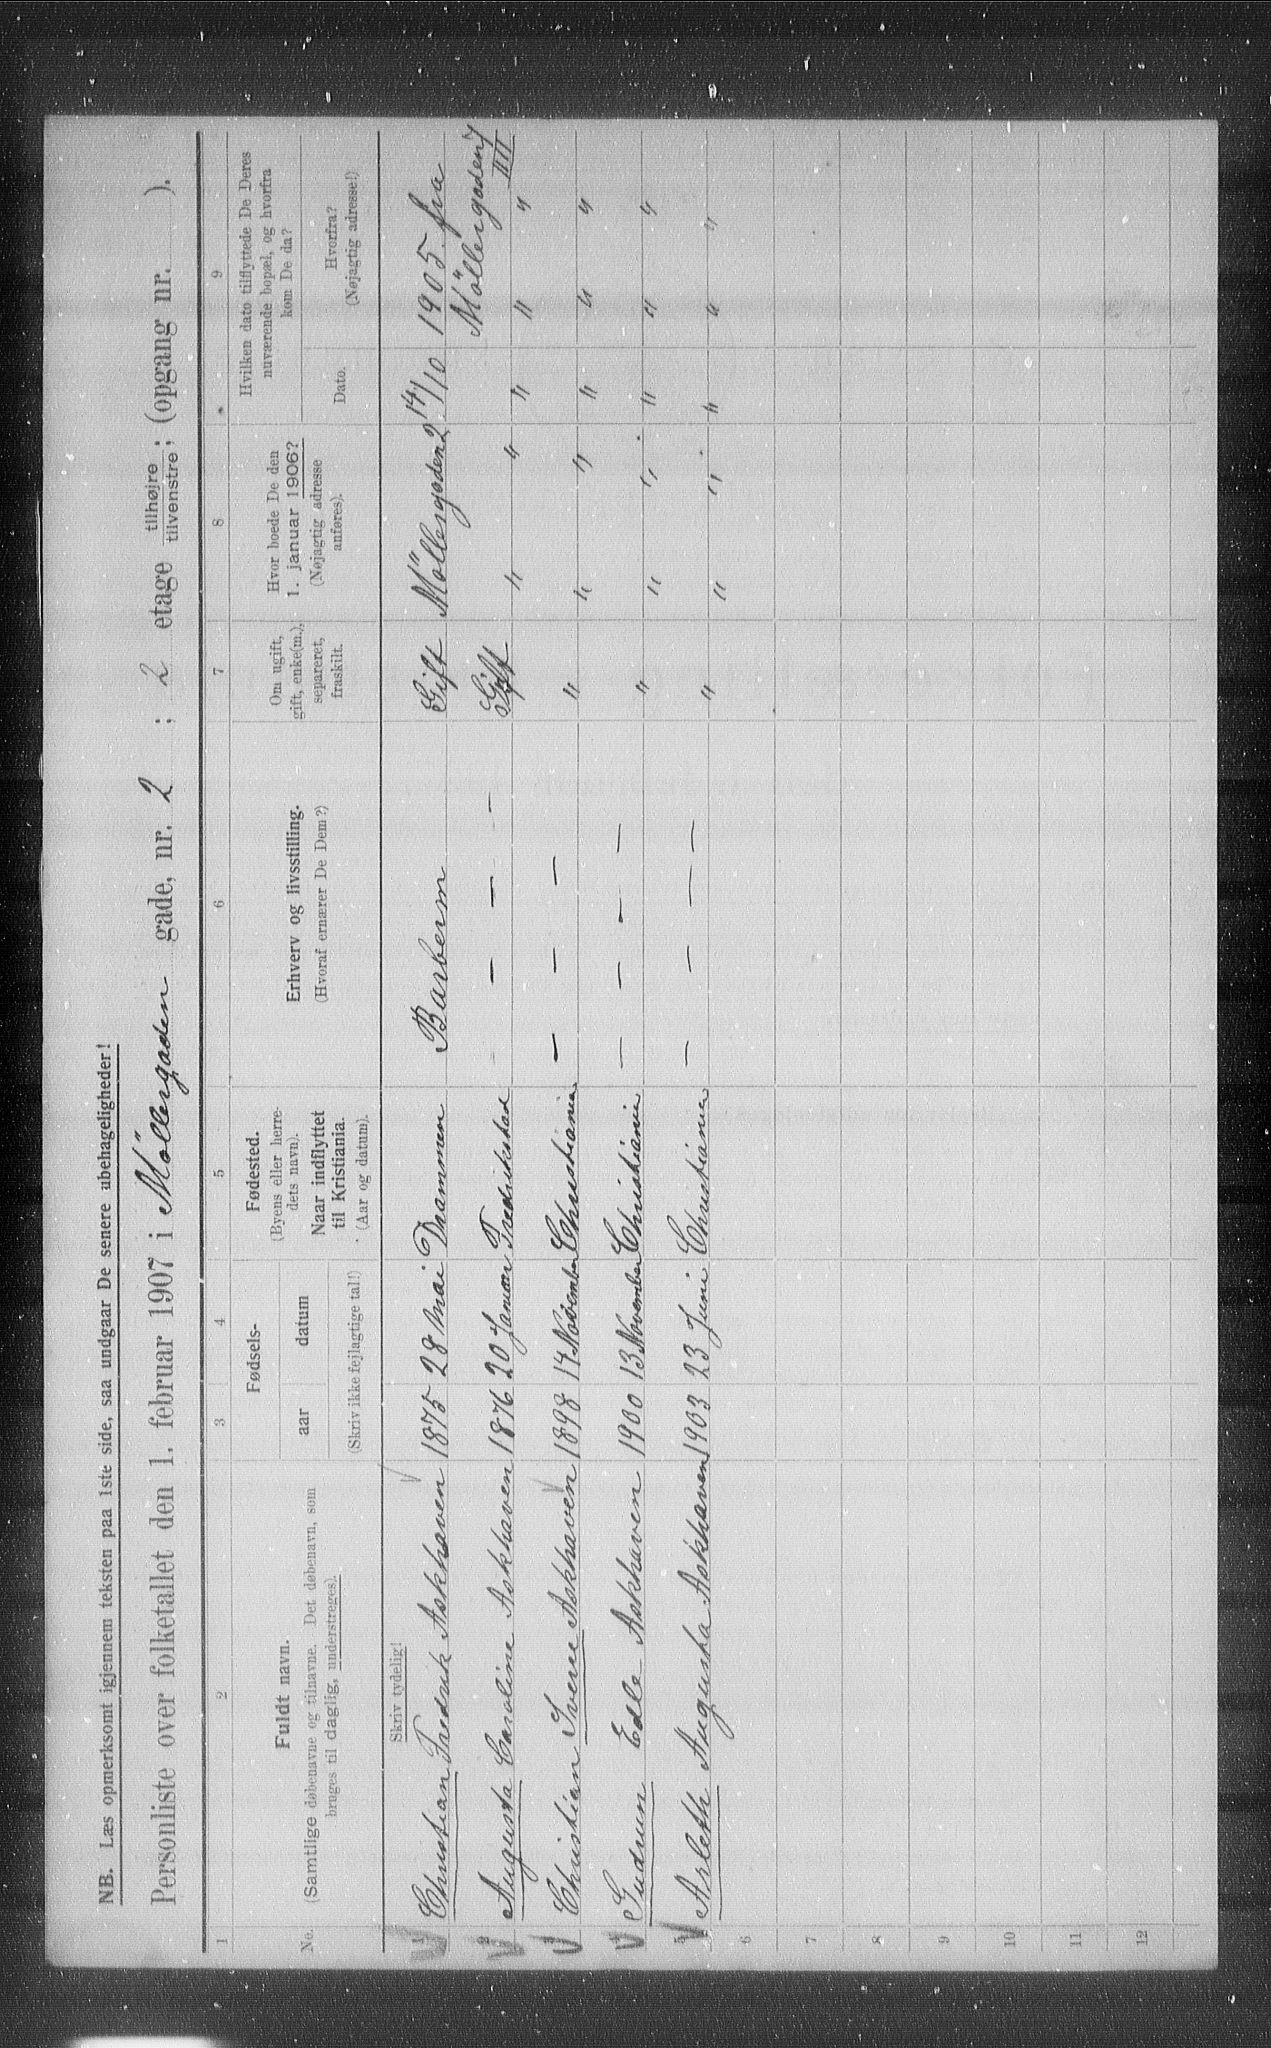 NB. Læs opmerksomt igjennem teksten paa 1ste side, saa undgaar De senere ubehageligheder!
Personliste over folketallet den 1. februar 1907 i Möllergaden gade, nr. 2 ; 2 etage tilhøjre ; (opgang nr. ).
tilvenstre ;
1 2 3 4 5 6 7 8 9
No.
Fuldt navn.
(Samtlige døbenavne og tilnavne. Det døbenavn, som
bruges til daglig, understreges).
Fødsels-
aar datum
(Skriv ikke fejlagtige tal!)
Fødested.
(Byens eller herre-
dets navn).
Naar indflyttet
til Kristiania.
(Aar og datum).
Erhverv og livsstilling.
(Hvoraf ernærer De Dem?)
Om ugift,
gift, enke(m.),
separeret,
fraskilt.
Hvor boede De den
1. januar 1906?
(Nøjagtig adresse
anføres).
Hvilken dato tilflyttede De Deres
nuværende bopæl, og hvorfra
kom De da?
Dato.
Hvorfra?
(Nøjagtig adresse!)
Skriv tydelig!
1 Christian Fredrik Askhaven 1875 28 Mai Drammen Barberm Gift Möllergaden 2 14/10 1905. fra
Möllergaden 7
IIII
2 Augusta Caroline Askhaven 1876 20 Januar Fredrikstad — — — Gift " " " " "
3 Christian Sverre Askhaven 1898 14 November Christiania — — — " " " " " "
4 Gudrun Edle Askhaven 1900 13 November Christiania — — — — " " " " " "
5 Arleth Augusta Askhaven 1903 23 Juni Christiania — — — — " " " " " "
6
7
8
9
10
11
12